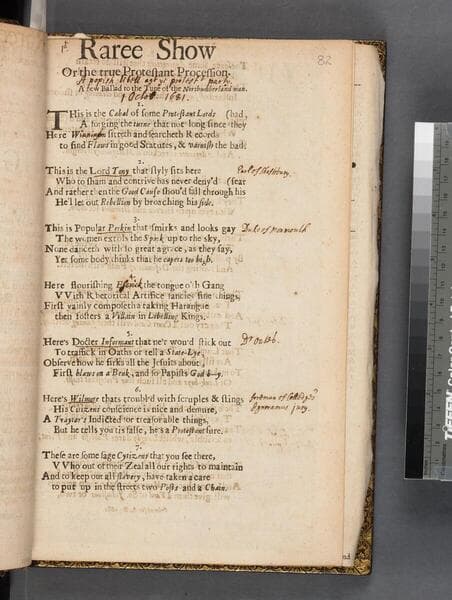 1d
Raree Show
82
Or the true Protestant Procession.
A popish libell agt ye protestt party.
A new Ballad to the Tune of the Northumberland man.
1 Octob. 1681.
THis is the Cabal of some Protestant Lords (had,
A forging the turne that not long since they
Here Winnington sitteth and searcheth Records
to find Flaws in good Statutes, & varnish the bad.
2.
This is the Lord Tony that slyly sits here Earl of Shaftsbury.
Who to sham and contrive has never deny'd (feat
And rather then the Good Cause shou'd fall through his
He'l let out Rebellion by broaching his side.
3.
This is Popular Perkin that smirks and looks gay Duke of Monmouth
The women extols the Spark up to the sky,
None danceth with so great a grace, as they say,
Yet some body thinks that he capers too high.
4.
Here flourishing the tongue o'th Gang
VVith Rhetorical Artifice fancies fine things,
First vainly composeth a taking Harangue
then fosters a Villain in Libelling Kings.
5.
Here's Docter Informant that ne'r wou'd stick out Dr Oates.
To traffick in Oaths or tell a State-Lye,
Observe how he firks all the Jesuits about,
First blows on a Beuk, and so Papists God b-y.
6.
Here's Wilmore thats troubl'd with scruples & stings foreman of Colledges
His Cittizens conscience is nice and demure, Ignoramus jury.
A Traytor's Indicted for treasonable things,
But he tells you tis false, he's a Protestant sure.
7.
These are some sage Cytizens that you see there,
VVho out of their Zeal all our rights to maintain
And to keep out all slavery, have taken a care
to put up in the streets two Posts and a Chain.